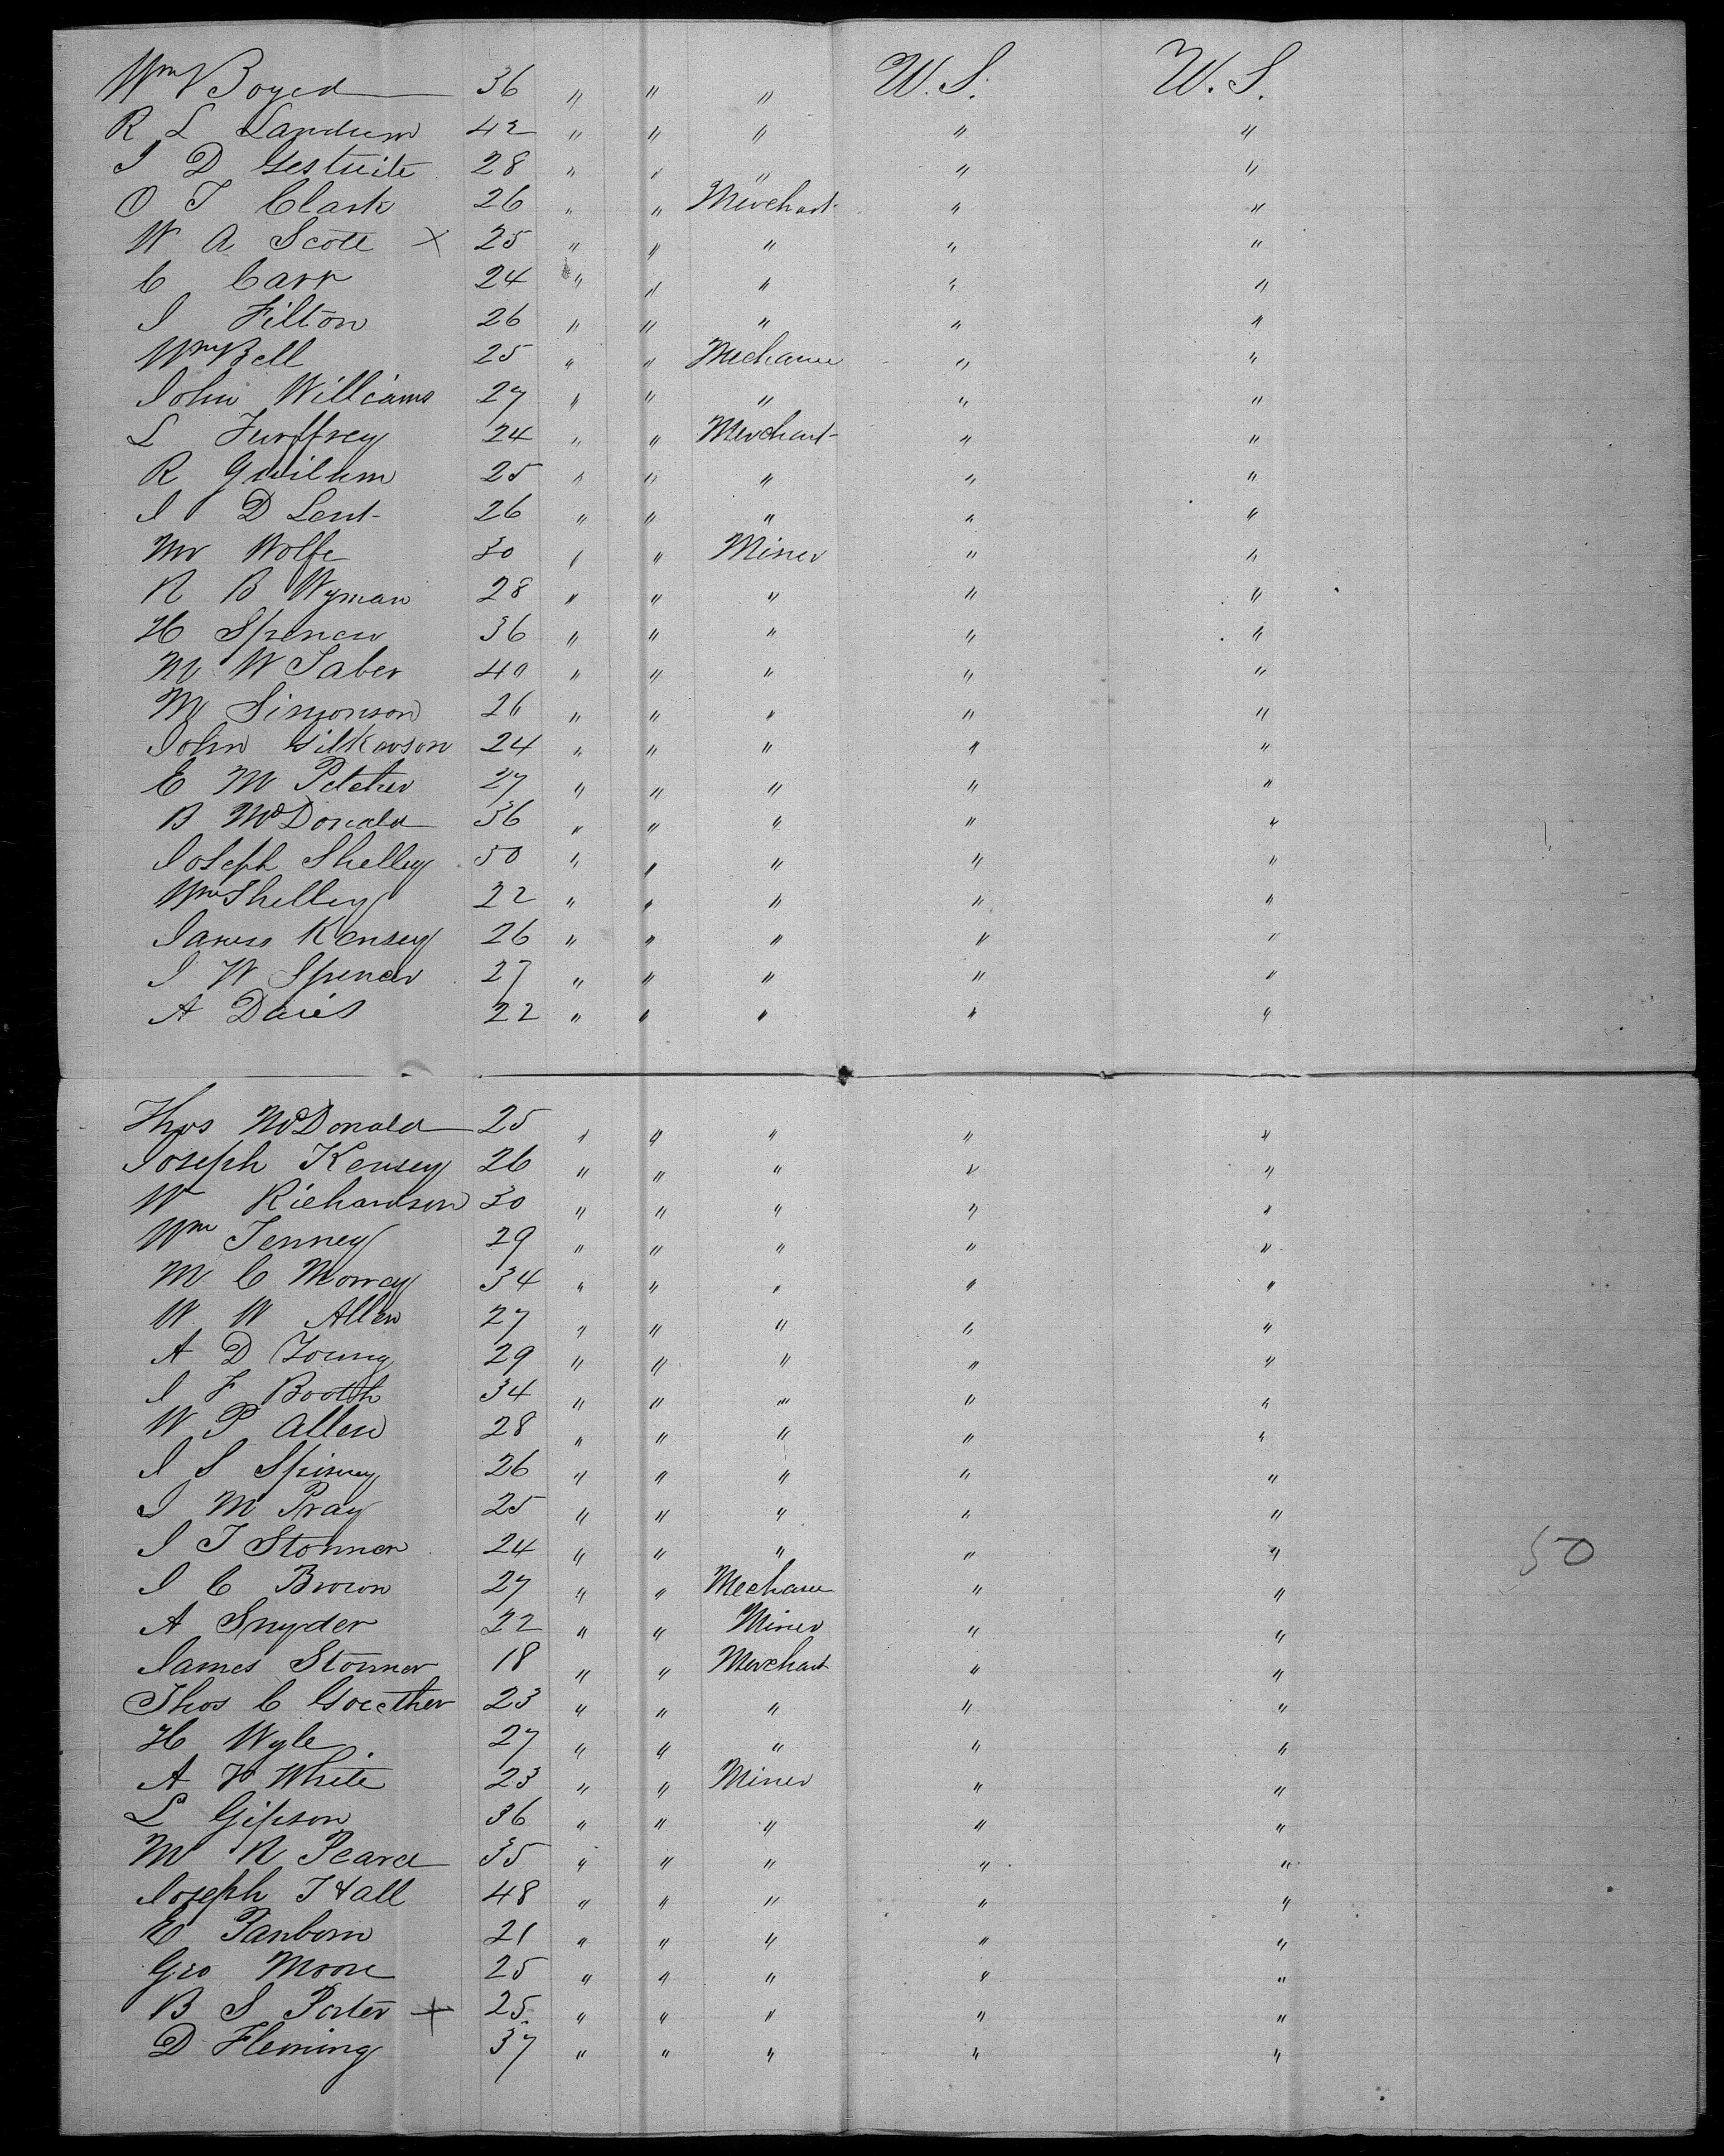 Wm Boyed 36 " " " U.S. U.S.
R L Landum 42 " " " " "
J D 28 " " " " "
O T Clark 26 " " Merchant " "
W A Scott × 25 " " " " "
C Carr 24 " " " " "
J Filton 26 " " " " "
Wm Bell 25 " " Mechanic " "
John Williams 27 " " " " "
L Furffrey 24 " " Merchant " "
R Guilum 25 " " " " "
J D Lent 26 " " " " "
Mr Wolfe 30 " " Miner " "
R B Wyman 28 " " " " "
H Spencer 36 " " " " "
M W Saber 40 " " " " "
M Simonson 26 " " " " "
John Wilkerson 24 " " " " "
E M Pelcher 27 " " " " "
B McDonald 36 " " " " "
Joseph Shelley 50 " " " " "
Wm Shelley 22 " " " " "
James Kensey 26 " " " " "
J W Spencer 27 " " " " "
A Davis 22 " " " " "
Thos McDonald 25 " " " " "
Joseph Kensey 26 " " " " "
W Richardson 30 " " " " "
Wm Tenney 29 " " " " "
M C Morray 34 " " " " "
W W Allen 27 " " " " "
A D Young 29 " " " " "
J F Booth 34 " " " " "
W P Allen 28 " " " " "
J S Spinney 26 " " " " "
J M Pray 25 " " " " "
J T Stonner 24 " " " " " 50
J C Brown 27 " " Mechanic " "
A Snyder 22 " " Miner " "
James Stonner 18 " " Merchant " "
Thos C 23 " " " " "
H Wyle 27 " " " " "
A W White 23 " " Miner " "
L Gipson 36 " " " " "
M R Pearce 35 " " " " "
Joseph Hall 48 " " " " "
E Panborn 21 " " " " "
Geo Moore 25 " " " " "
B S Porter + 25 " " " " "
D Fleming 37 " " " " "